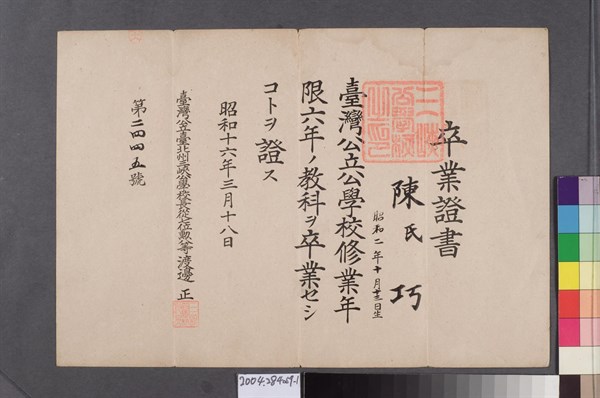 卒業證書
陳氏巧
昭和二年十月廿三日生
臺灣公立公學校修業年
限六年ノ教科ヲ卒業セシ
コトヲ證ス
昭和十六年三月十八日
臺灣公立臺北州三峽公學校長從七位勲八等渡邊正
第二四四五號
2004.28.4269-1